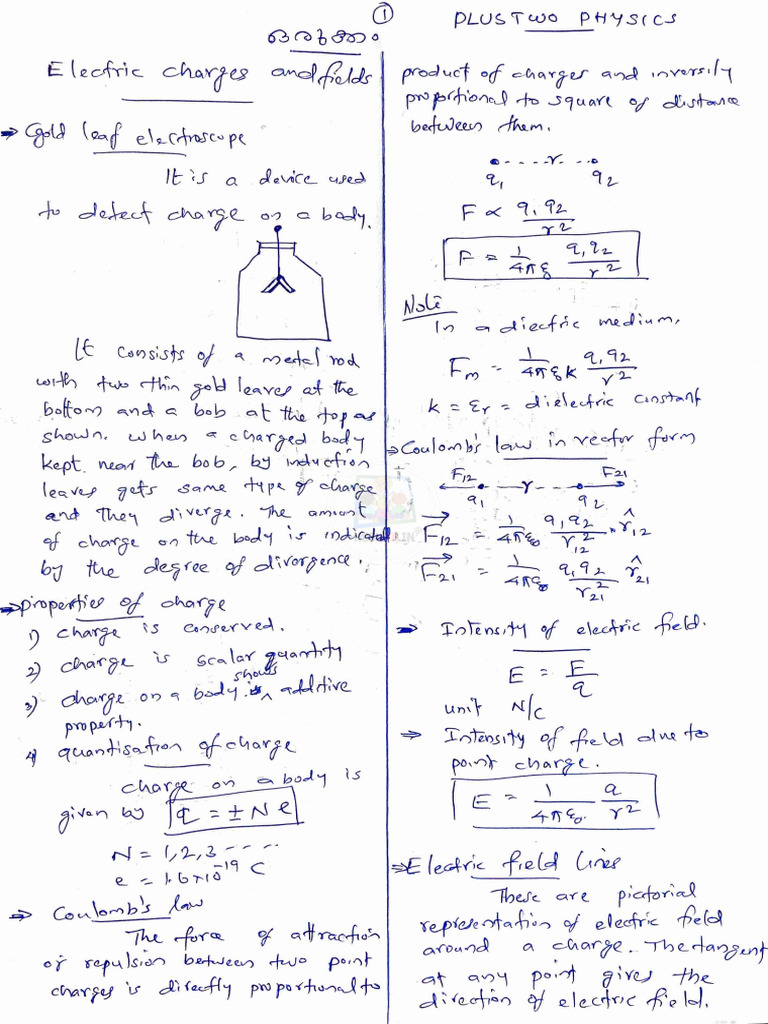 ①
PLUSTWO PHYSICS
ഒരുക്കം
Electric charges and fields
⇒ Gold leaf electroscope
It is a device used
to detect charge on a body.
It consists of a metal rod
with two thin gold leaves at the
bottom and a bob at the top as
shown. When a charged body
kept near the bob, by induction
leaves gets same type of charge
and they diverge. The amount
of charge on the body is indicated
by the degree of divorgence.
⇒ properties of charge
1) charge is conserved.
2) charge is scalar quantity
3) charge on a body shows additive
property.
4) quantisation of charge
charge on a body is
given by q = ± N e
N = 1, 2, 3 - - - -
e = 1.6×10⁻¹⁹ C
⇒ Coulomb's law
The force of attraction
or repulsion between two point
charges is directly proportional to
product of charges and inversily
proportional to square of distance
between them.
r
q₁ q₂
F ∝ q₁q₂/r²
F = 1/4πε q₁q₂/r²
Note
In a diectric medium,
Fm = 1/4πεk q₁q₂/r²
k = εr = dielectric constant
⇒ Coulomb's law in vector form
F12 r F21
q₁ q₂
F12 = 1/4πε₀ q₁q₂/r12² r̂12
F21 = 1/4πε₀ q₁q₂/r21² r̂21
⇒ Intensity of electric field.
E = F/q
unit N/C
⇒ Intensity of field due to
point charge.
E = 1/4πε₀ q/r²
⇒ Electric field lines
These are pictorial
representation of electric field
around a charge. The tangent
at any point gives the
direction of electric field.